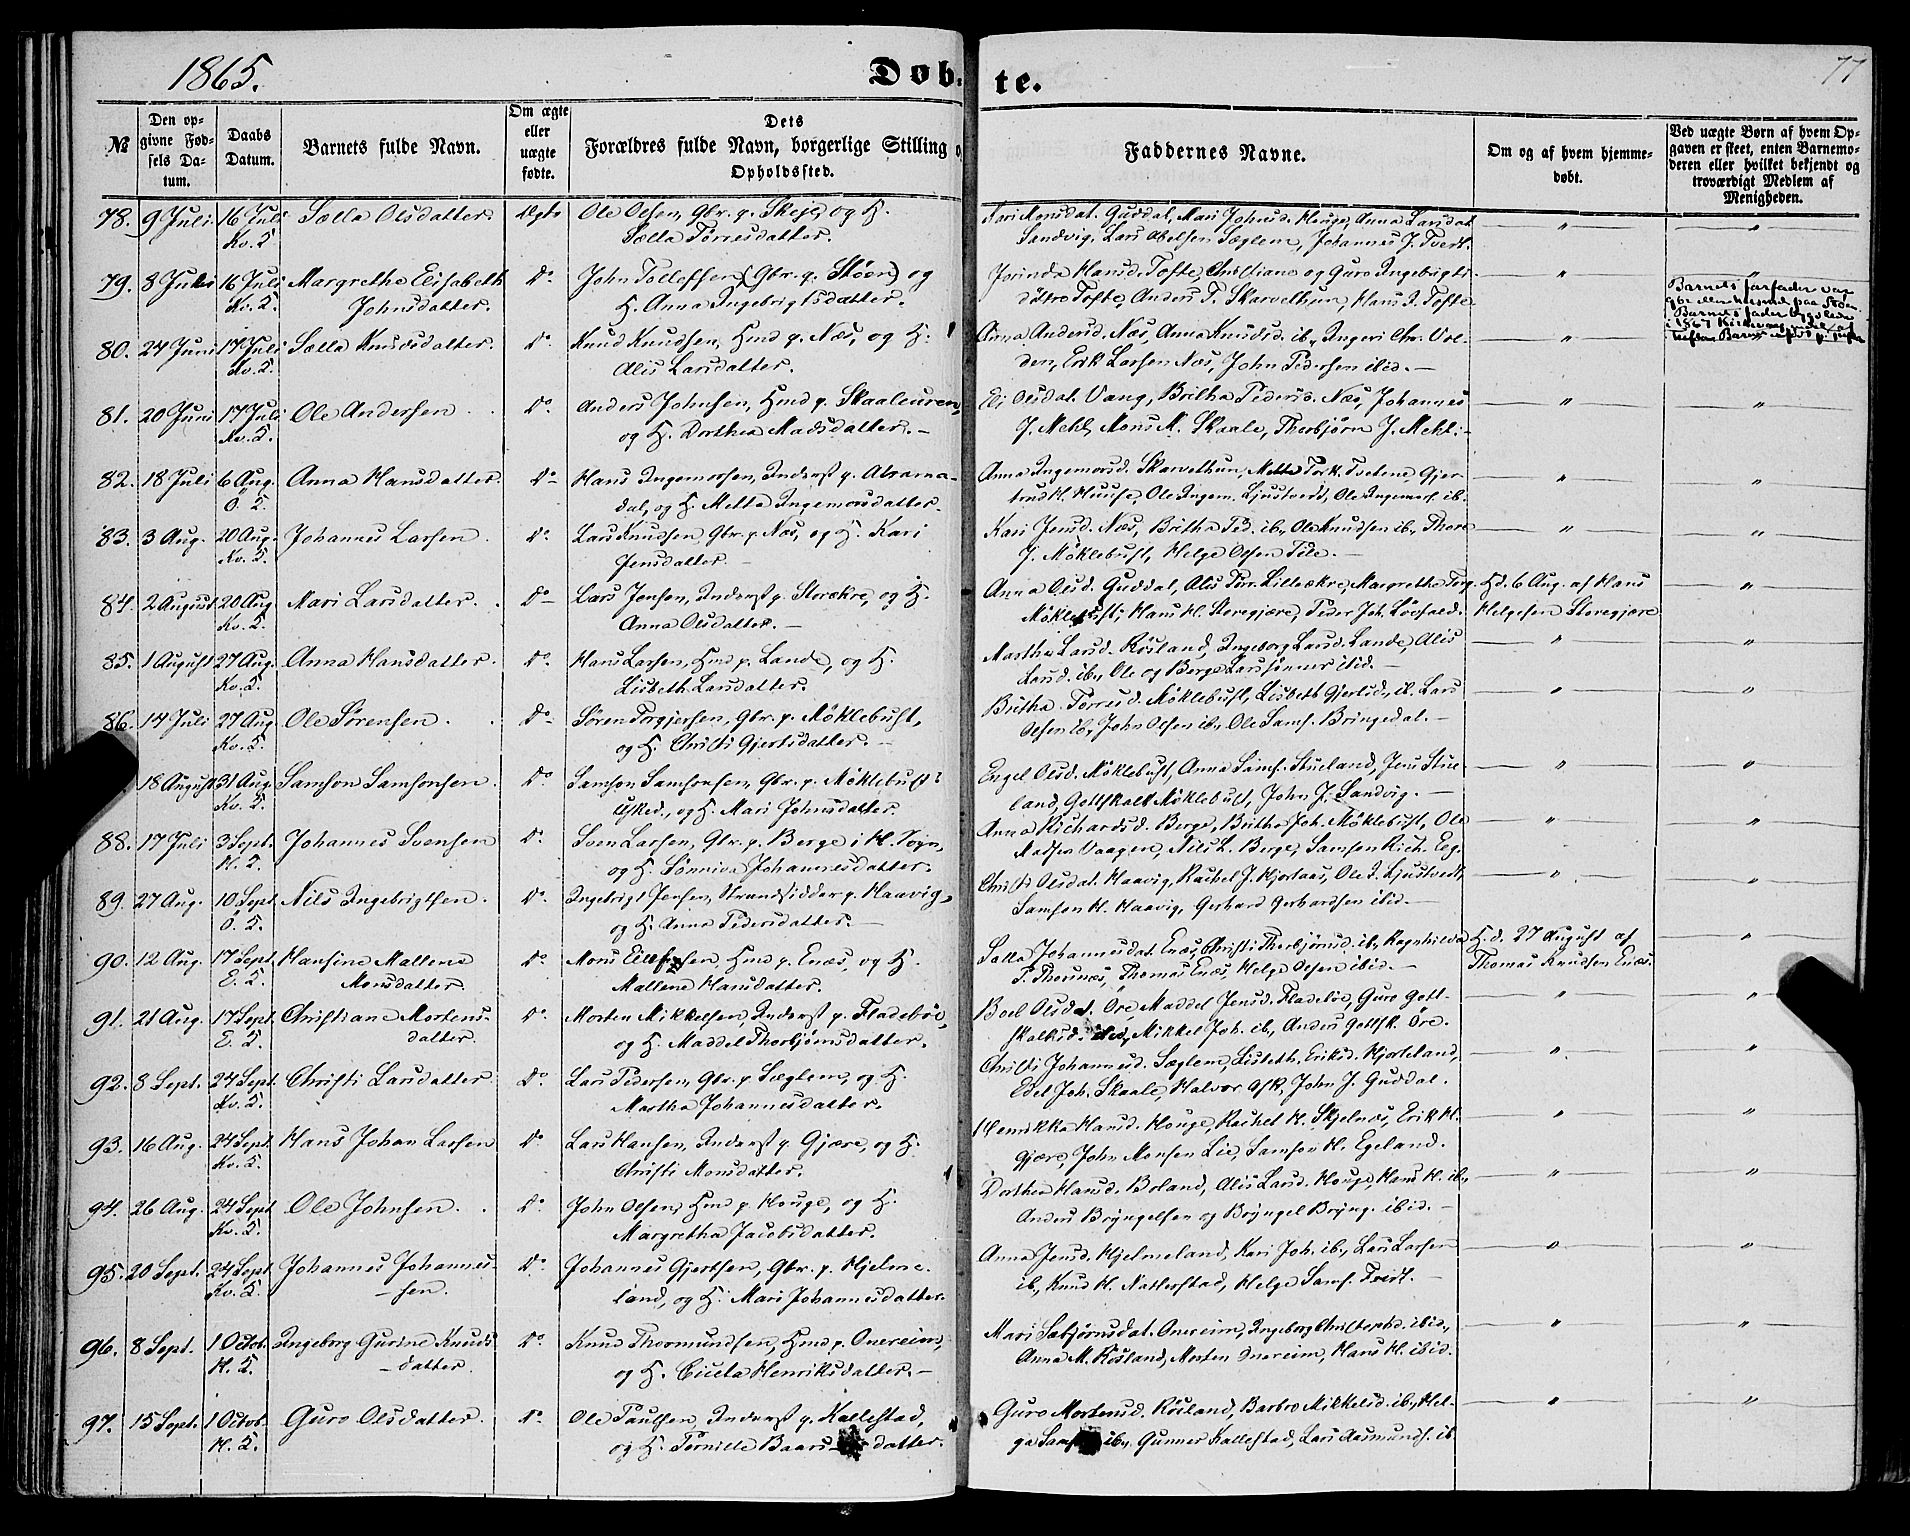 1865.
Døb-
te.
77
№
Den op-
givne Fød-
sels Da-
tum.
Daabs
Datum.
Barnets fulde Navn.
Om ægte
eller
uægte
fødte.
Dets
Forældres fulde Navn, borgerlige Stilling o
Opholdssted.
Faddernes Navne.
Om og af hvem hjemme-
døbt.
Ved uægte Børn af hvem Op-
gaven er skeet, enten Barnemo-
deren eller hvilket bekjendt og
troværdigt Medlem af
Menigheden.
78. 9 Juli 16 Juli Sælla Olsdatter Ægte Ole Olsen, Gbr. p. Skeje, og H.
Kv. S. Sælla Torresdatter.
Tori Monsdat. Guddal, Mari Johnsd. Houge, Anna Larsdat.
Sandvig, Lars Abelsen Sæglem, Johannes J. Tvedt.
79. 8 Juli 16 Juli Margrethe Elisabeth Do John Tollefsen (Gbr. p. Støen) og
Kv. S. Johnsdatter. H. Anna Ingebrigtsdatter.
Jorinda Hansd. Tofte, Christiane og Guro Ingebrigts-
døttre Tofte, Anders T. Skarvelhun, Hans I. Tofte
Barnets farfader var
gbr. eller husmd paa Støen
Barnets fader bygslede
i 1867
80. 24 Juni 17 Juli Sælla Knudsdatter. Do Knud Knudsen, Hmd p. Næs, og H.
Kv. S. Alis Larsdatter.
Anna Andersd. Næs, Anna Knudsd. ib., Ingeri Chr. Vol-
den, Erik Larsen Næs, John Pedersen ibid.
81. 20 Juni 17 Juli Ole Andersen Do Anders Johnsen, Hmd p. Skaaleuren,
Kv. S. og H. Dorthea Madsdatter.
Eli Olsdat. Vang, Britha Pedersd. Næs, Johannes
J. Mehl, Mons M. Skaale, Thorbjørn J. Mehl.
82. 18 Juli 6 Aug. Anna Hansdatter Do Hans Ingemorsen, Inderst p. Abrama-
Ö. S. dal, og H. Metta Ingemorsdatter.
Anna Ingemorsd. Skarvelhun, Mette Tork. Tveterne, Gjer-
trud H. Huuse, Ole Ingem. Ljustvedt, Ole Ingemors. ib.
83. 3 Aug. 20 Aug. Johannes Larsen Do Lars Knudsen, Gbr. p. Næs, og H. Kari
Kv. S. Jensdatter.
Kari Jensd. Næs, Britha Ped. ib., Ole Knudsen ib., Thore
J. Møklebust, Helge Olsen Tele.
84. 2 August 20 Aug. Mari Larsdatter. Do Lars Jensen, Inderst p. Storækre, og H.
Kv. S. Anna Olsdatter.
Anna Olsd. Guddal, Alis Torr. Lilleækre, Margretha Torg.
Møklebust, Hans H. Storegjære, Peder Joh. Løvfald.
Hd. 6 Aug. af Hans
Helgesen Storegjære
85. 1 August 27 Aug. Anna Hansdatter. Do Hans Larsen, Hmd p. Lande, og H.
Kv. S. Lisbeth Larsdatter.
Martha Larsd. Røsland, Ingeborg Larsd. Lande, Alis
Larsd. ib., Ole og Berge Larssønner ibid.
86. 14 Juli 27 Aug. Ole Sørensen. Do Søren Torgjersen, Gbr. p. Møklebust,
Kv. S. og H. Christi Gjertsdatter.
Britha Torresd. Møklebust, Lisbeth Gjertsd. ib., Lars
Olsen ib., John Olsen ib., Ole Sams. Bringedal.
18 August 31 Aug. Samson Samsonsen Do Samson Samsonsen, Gbr. p. Møklebust i
Kv. S. Usked., og H. Mari Johnsdatter
Engel Olsd. Møklebust, Anna Sams. Stueland, Jens Stue-
land, Gottskalk Møklebust, John J. Sandvig.
88. 17 Juli 3 Sept. Johannes Svensen Do Sven Larsen, Gbr. p. Berge i H. Sogn,
H. S. og H. Sønniva Johannesdatter.
Anna Richardsd. Berge, Britha Joh. Møklebust, Ole
Madsen Vaagen, Nils L. Berge, Samson Rich. Eeg.
89. 27 Aug. 10 Sept. Nils Ingebrigtsen. Do Ingebrigt Jensen, Strandsidder p. Haavig,
Ö. S. og H. Anna Pedersdatter.
Christi Olsdat. Haavig, Rachel J. Hjortaas, Ole I. Ljustvedt,
Samson H. Haavig, Gerhard Gerhardsen ibid.
90. 12 Aug. 17 Sept. Hansine Mallene Do Mons Ellefsen, Hmd p. Enæs, og H.
E. S. Monsdatter. Mallene Hansdatter.
Salla Johannesdat. Enæs, Christi Thorbjørnsd. ib., Ragnhilda
P. Thornæs, Thomas Enæs, Helge Olsen ibid.
Hd. 27 August af
Thomas Knudsen Enæs.
91. 21 Aug. 17 Sept. Christiane Mortens- Do Morten Mikkelsen, Inderst p. Fladebøe,
E. S. datter. og H. Maddel Thorbjørnsdatter.
Boel Olsdat. Øre, Maddel Jensd. Fladebøe, Guro Gott-
skalksd. Mikkel Joh. ib., Anders Gottsk. Øre.
92. 8 Sept. 24 Sept. Christi Larsdatter Do Lars Pedersen, Gbr. p. Sæglem, og H.
Kv. S. Martha Johannesdatter.
Christi Johannesd. Sæglem, Lisbeth Eriksd. Hjorteland,
Edel Joh. Skaale, Halvor Ask, John J. Guddal.
93. 16 Aug. 24 Sept. Hans Johan Larsen Do Lars Hansen, Inderst p. Gjære, og H.
Kv. S. Christi Monsdatter.
Henrikka Hansd. Houge, Rachel H. Skjelnæs, Erik H.
Gjære, John Monsen Lie, Samson H. Egeland.
94. 26 Aug. 24 Sept. Ole Johnsen. Do John Olsen, Hmd p. Houge, og H.
Kv. S. Margretha Jacobsdatter.
Dorthea Hansd. Boland, Alis Larsd. Houge, Hans H. ib.,
Anders Bryngelsen og Bryngel Bryng. ibid.
95. 20 Sept. 24 Sept. Johannes Johannes- Do Johannes Gjertsen, Gbr. p. Hjelme-
Kv. S. -sen. land, og H. Mari Johannesdatter.
Anna Jensd. Hjelmeland, Kari Joh. ib., Lars Larsen
ib., Knud H. Natterstad, Helge Sams. Tvidt.
96. 8 Sept. 1 Octob. Ingeborg Gurine Knuds- Do Knud Thormundsen, Hmd p. Onereim,
H. S. -datter og H. Cicela Henriksdatter.
Mari Sebjørnsdat. Onereim, Ingeborg Christophsd. ibid.,
Anna M. Røsland, Morten Onereim, Hans H. ibid.
97. 15 Sept. 1 Octob. Guro Olsdatter. Do Ole Paulsen, Inderst p. Kallestad,
H. S. og H. Pernille Baarsdatter.
Guro Mortensd. Røsland, Barbro Mikkelsd. ib., Hel-
ga ib., Gunner Kallestad, Lars Aasmunds. ib